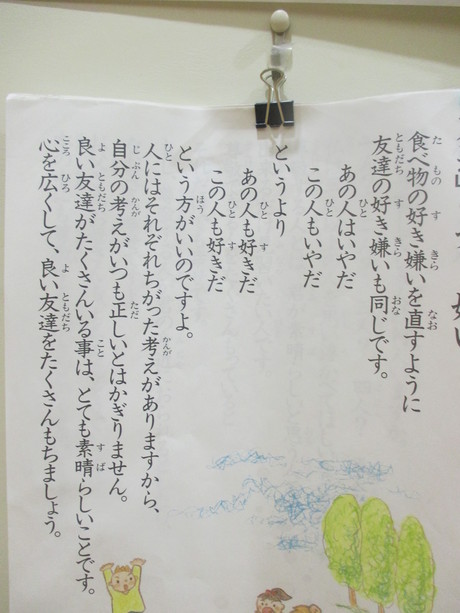 食べ物の好き嫌いを直すように
友達の好き嫌いも同じです。
あの人はいやだ
この人もいやだ
というより
あの人も好きだ
この人も好きだ
という方がいいのですよ。
人にはそれぞれちがった考えがありますから、
自分の考えがいつも正しいとはかぎりません。
良い友達がたくさんいる事は、とても素晴らしいことです。
心を広くして、良い友達をたくさんもちましょう。